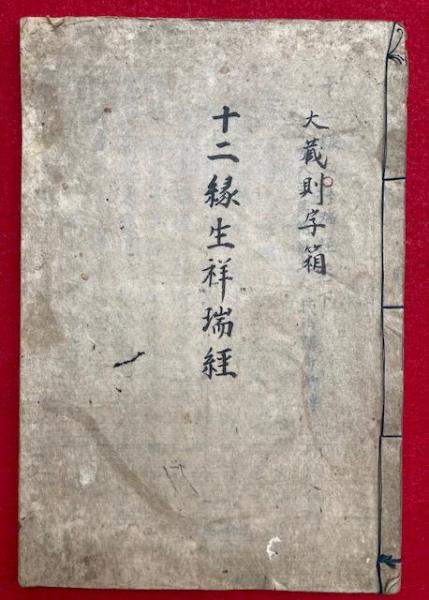 大蔵則字箱
十二縁生祥瑞經